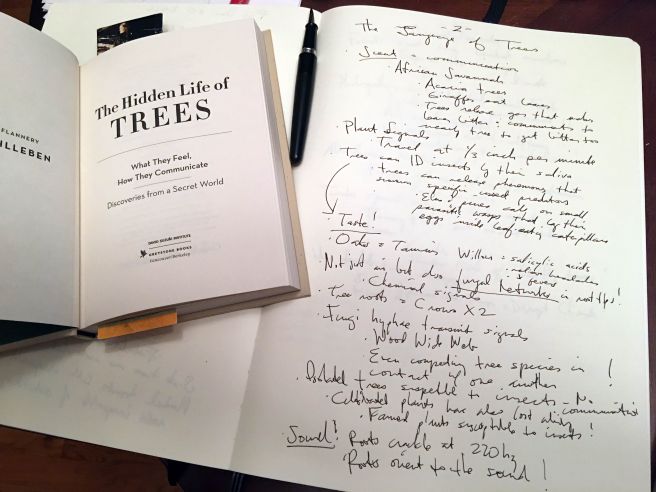 FLANNERY
LLEBEN
The Hidden Life of
TREES
What They Feel,
How They Communicate
Discoveries from a Secret World
DAVID SUZUKI INSTITUTE
GREYSTONE BOOKS
Vancouver/Berkeley
- 2 -
The Language of Trees
· Scent = communication
· African Savannah
· Acacia trees
· Giraffes eat leaves
· Trees release gas that makes
leaves bitter + communicates to
nearby tree to get bitter too
· Plant Signals
· Travel at 1/3 inch per minute
· Trees can ID insects by their saliva
· trees can release pheromones that
summon specific insect predators
· Elms + pines call on small
parasitic wasps that lay their
eggs inside leaf eating caterpillars
· Taste!
· Oaks = Tannins Willow = salicylic acids
+ fevers
· Not just air but also fungal networks in root tips!
· Chemical signals
· Tree roots = Crown X2
· Fungi hyphae transmit signals
· Wood Wide Web
· Even competing tree species in
contact w/ one another !
· Isolated trees susceptible to insects - No communication
· Cultivated plants have also lost ability
· Farmed plants susceptible to insects!
· Sound! Roots crackle at 220 hz
· Roots orient to the sound !